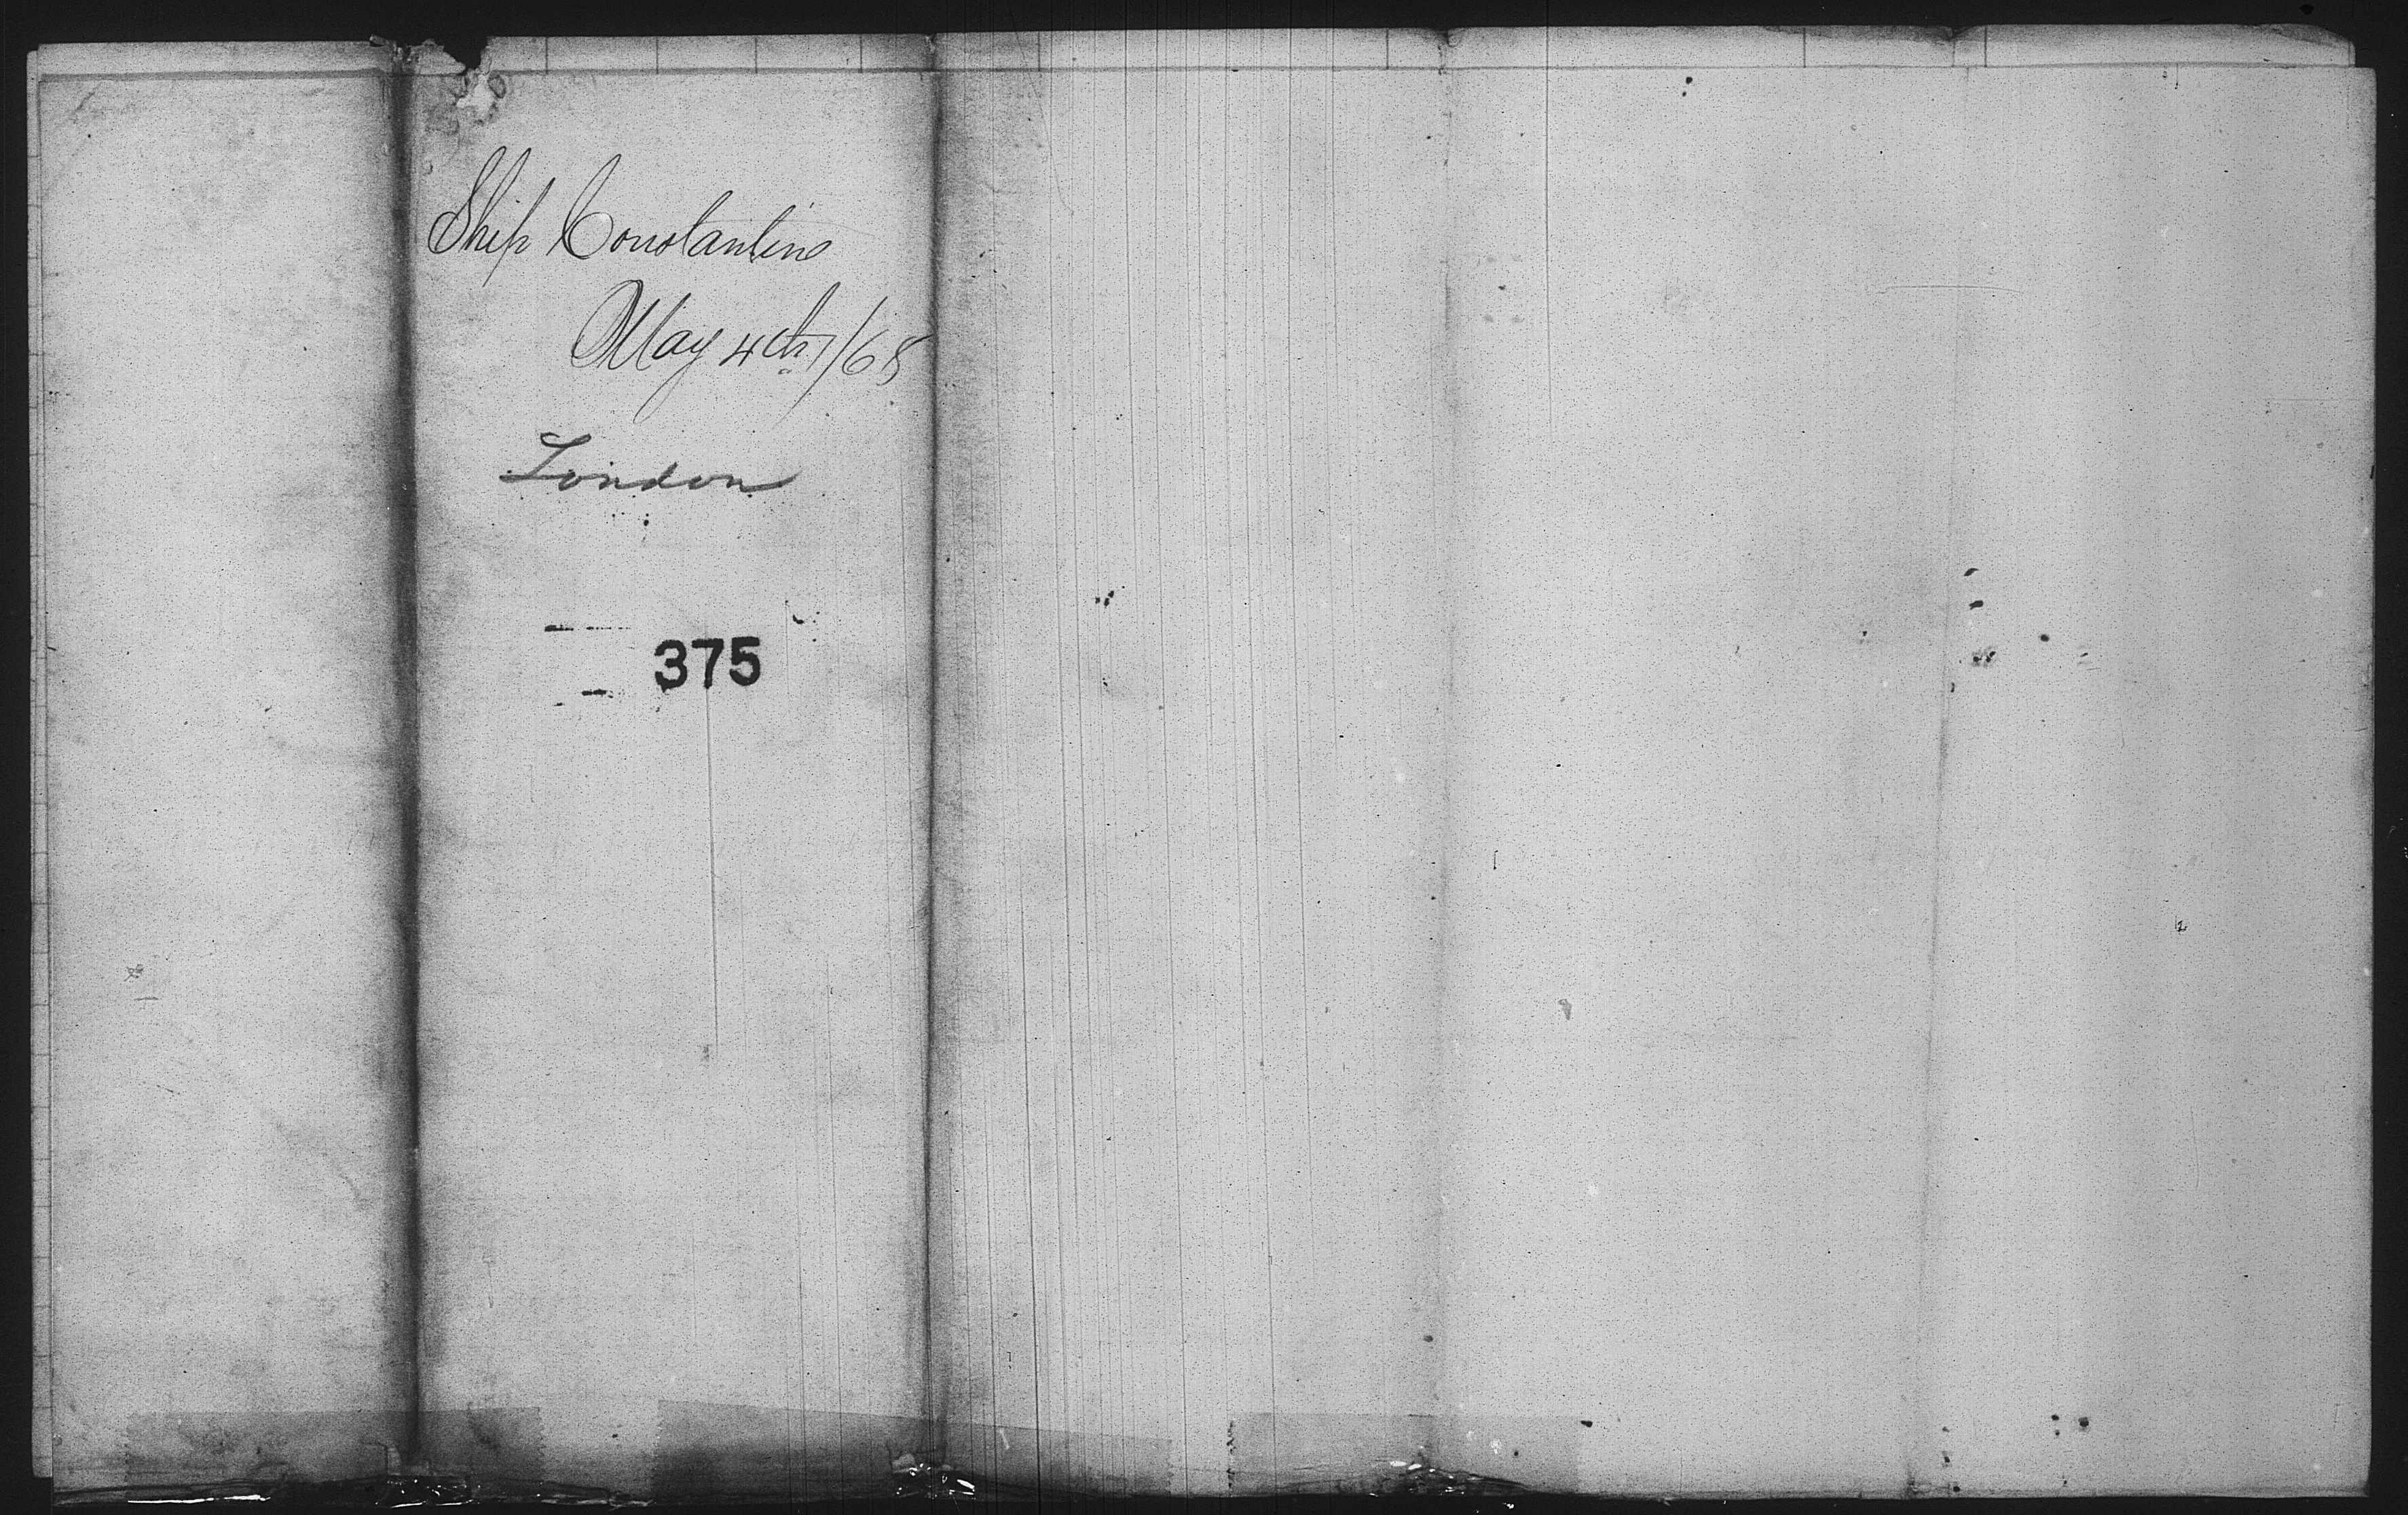 Ship Constantine
May 4th/68
London
375